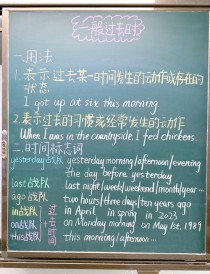 一般过去时
一.用法
1.表示过去某一时间发生的动作或存在的
状态
I got up at six this morning.
2.表示过去的习惯或经常发生的动作
When I was in the countryside, I fed chickens.
二.时间标志词
yesterday战队 yesterday morning/afternoon/evening
the day before yesterday
last战队 last night/week/weekend/month/year...
ago战队 two hours/three days/ten years ago
in战队 in April in spring in 2023
on战队 on Monday morning on May 1st, 1989
this战队 this morning/afternoon...
过去时间